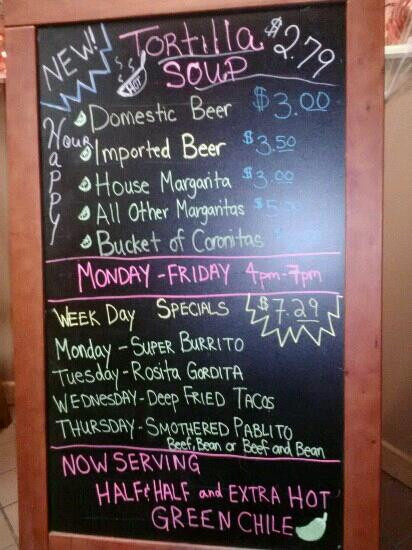 NEW! TORTILLA $2.79
HOT SOUP
HAPPY HOUR
Domestic Beer $3.00
Imported Beer $3.50
House Margarita $3.00
All Other Margaritas
Bucket of Coronitas
MONDAY-FRIDAY 4pm-7pm
WEEK DAY SPECIALS $7.29
Monday-SUPER BURRITO
TUESDAY-ROSITA GORDITA
WEDNESDAY-DEEP FRIED TACOS
THURSDAY-SMOTHERED PABLITO
Beef, Bean or Beef and Bean
NOW SERVING
HALF & HALF and EXTRA HOT
GREEN CHILE